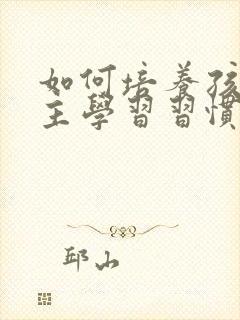 如何培養孩
主學習習慣
邱山